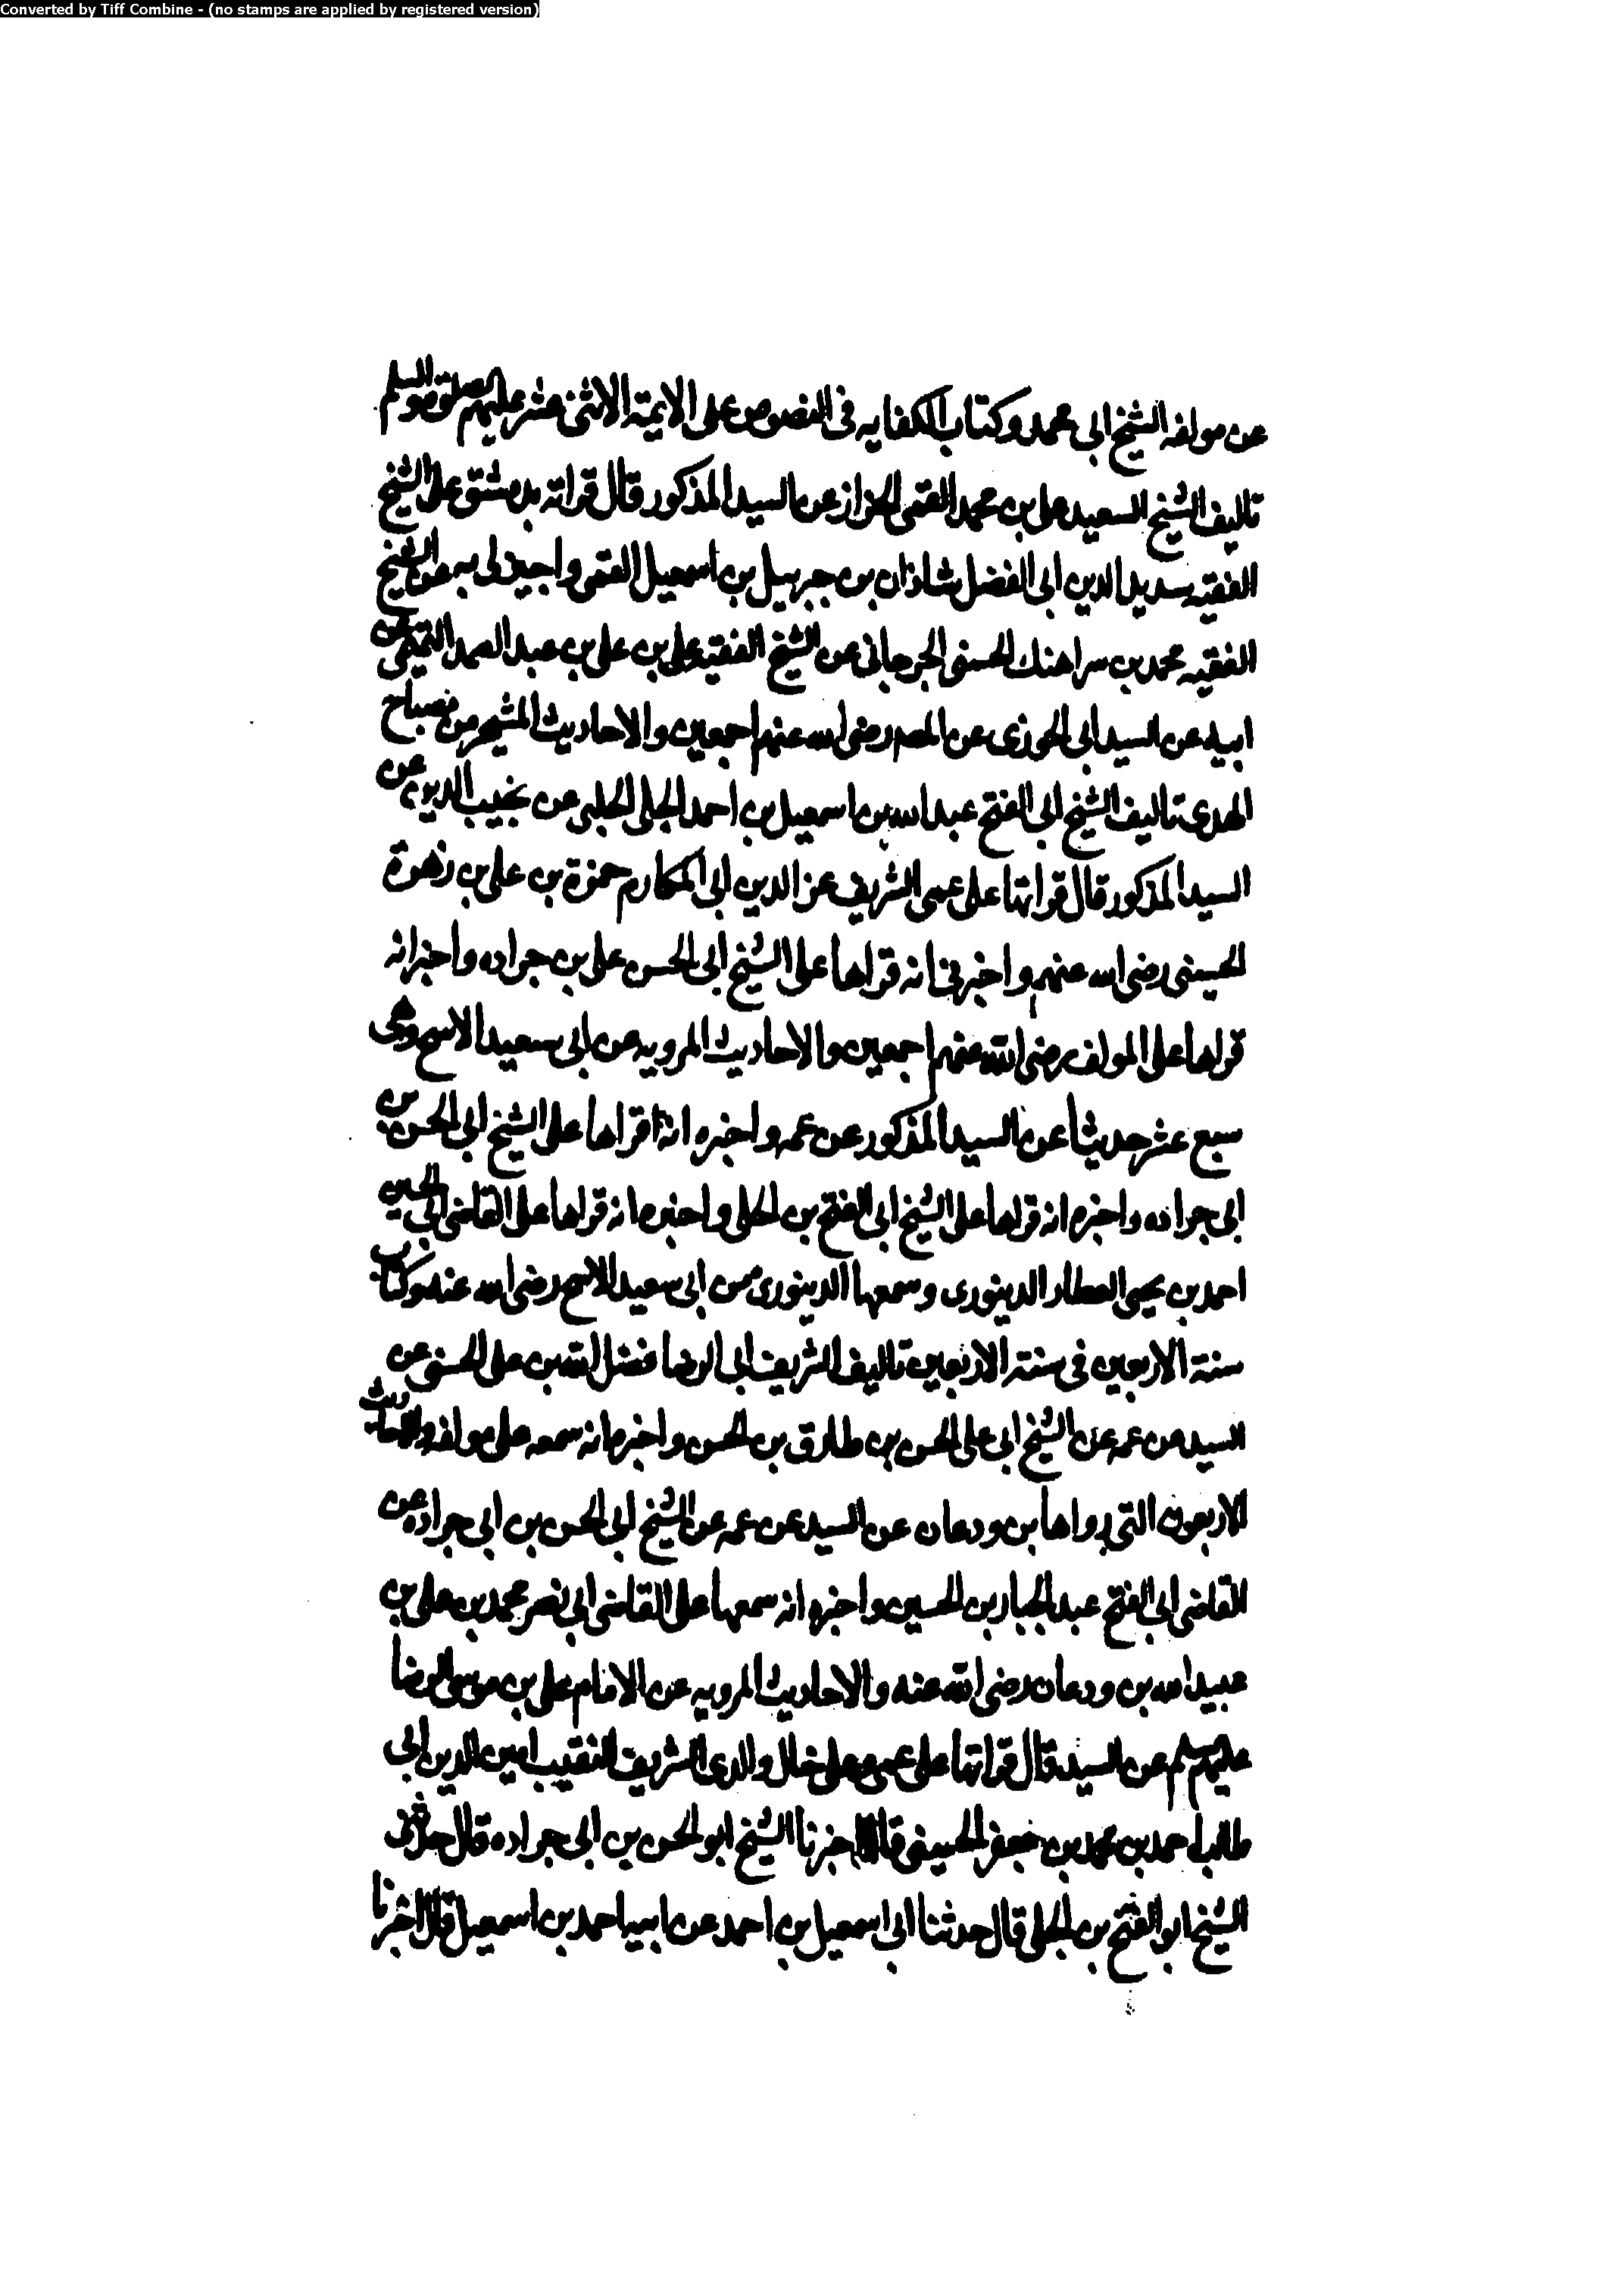 Converted by Tiff Combine - (no stamps are applied by registered version)
عن مولفه الشيخ ابى محمد وكتاب الكفايه فى النصوص على الايمة الاثنى عشر عليهم الصلوة والسلم
تاليف الشيخ السعيد على بن محمد القمى الخزاز عن السيد المذكور قال قراته بدمشق على الشيخ
الفقيه سديد الدين ابى الفضل شاذان بن جبرييل بن اسمعيل القمى واجيز لى به عن الشيخ
الفقيه محمد بن سراهنك الحسنى الجرجانى عن الشيخ الفقيه على بن على بن عبد الصمد التميمى عن
ابيه عن السيد ابى الجوزى عن المص رضى الله عنهم اجمعين والاحاديث من مصباح
الهدى تاليف الشيخ ابى الفتح عبد الله بن اسمعيل بن احمد الجلى الحلبى عن نجيب الدين عن
السيد المذكور قال قراتها على عمى الشريف عز الدين ابى المكارم حمزة بن على بن زهرة
الحسينى رضى الله عنهم واخبرنى انه قراها على الشيخ ابى الحسن على بن جراده واخبر انه
قراها على المولف رضى الله عنهم اجمعين والاحاديث المرويه عن ابى سعيد الاشج وهى
سبع عشر حديثا عن السيد المذكور عن عمه واخبره انه قراها على الشيخ ابى الحسن بن
ابى جراده واخبره انه قراها على الشيخ ابى الفتح بن الجلى واخبره انه قراها على القاضى ابى الحسين
احمد بن يحيى العطار الدينورى وسمعها الدينورى من ابى سعيد الاشج رضى الله عنه وكتاب
سنة الاربعين فى سنة الاربعين تاليف الشريف ابى الرضا فضل الله بن على الحسنى عن
السيد عن عمه عن الشيخ ابى على الحسن بن طارق بن الحسن واخبره انه سمعه على مولفه والاحاديث
الاربعون التى رواها بن ودعان عن السيد عن عمه عن الشيخ ابى الحسن بن ابى جراده عن
القاضى ابى الفتح عبد الجبار بن الحسين واخبره انه سمعها على القاضى ابى نصر محمد بن على بن
عبيد الله بن ودعان رضى الله عنه والاحاديث المرويه عن الامام على بن موسى الرضا
عليهم عن السيد قال قراتها على عمى وعلى خال والدى الشريف النقيب امين الدين ابى
طالب احمد بن محمد بن جعفر الحسينى قالا اخبرنا الشيخ ابو الحسن بن ابى جراده قال حدثنى
الشيخ ابو الفتح بن الجلى قال حدثنا ابى اسمعيل بن احمد عن ابيه احمد بن اسمعيل قال اخبرنا